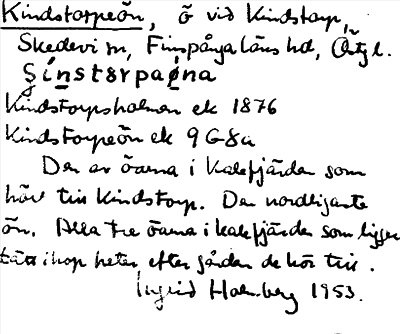 Kindstorpeön, ö vid Kindstorp,
Skedevi sn, Finspånga läns hd, Östgl.
Şinstørpaøna
Kindstorpsholmen ek 1876
Kindstorpeön ek 9G8a
De av öarna i Kalvfjärden som
hör till Kindstorp. Den nordligaste
ön. Alla tre öarna i kalvfjärden som ligger
tätt ihop heter efter gården de hör till.
Ingrid Holmberg 1953.